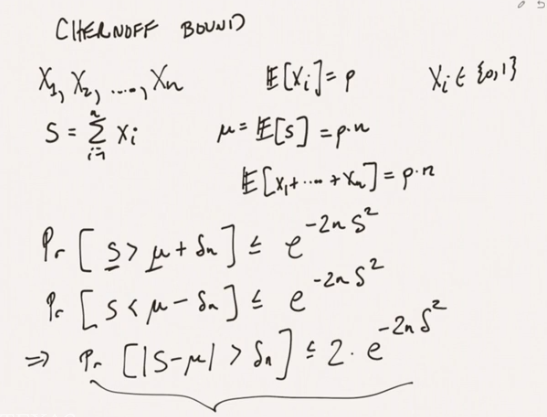 CHERNOFF BOUND
X₁, X₂, ...., Xn   𝔼[Xi]=p   Xi ∈ {0,1}
S = ∑_{i=1}^{n} Xi   μ = 𝔼[S] = p·n
𝔼[X₁+....+Xn] = p·n
Pr [S > μ + δn] ≤ e^{-2nδ²}
Pr [S < μ - δn] ≤ e^{-2nδ²}
⇒ Pr [|S-μ| > δn] ≤ 2 · e^{-2nδ²}